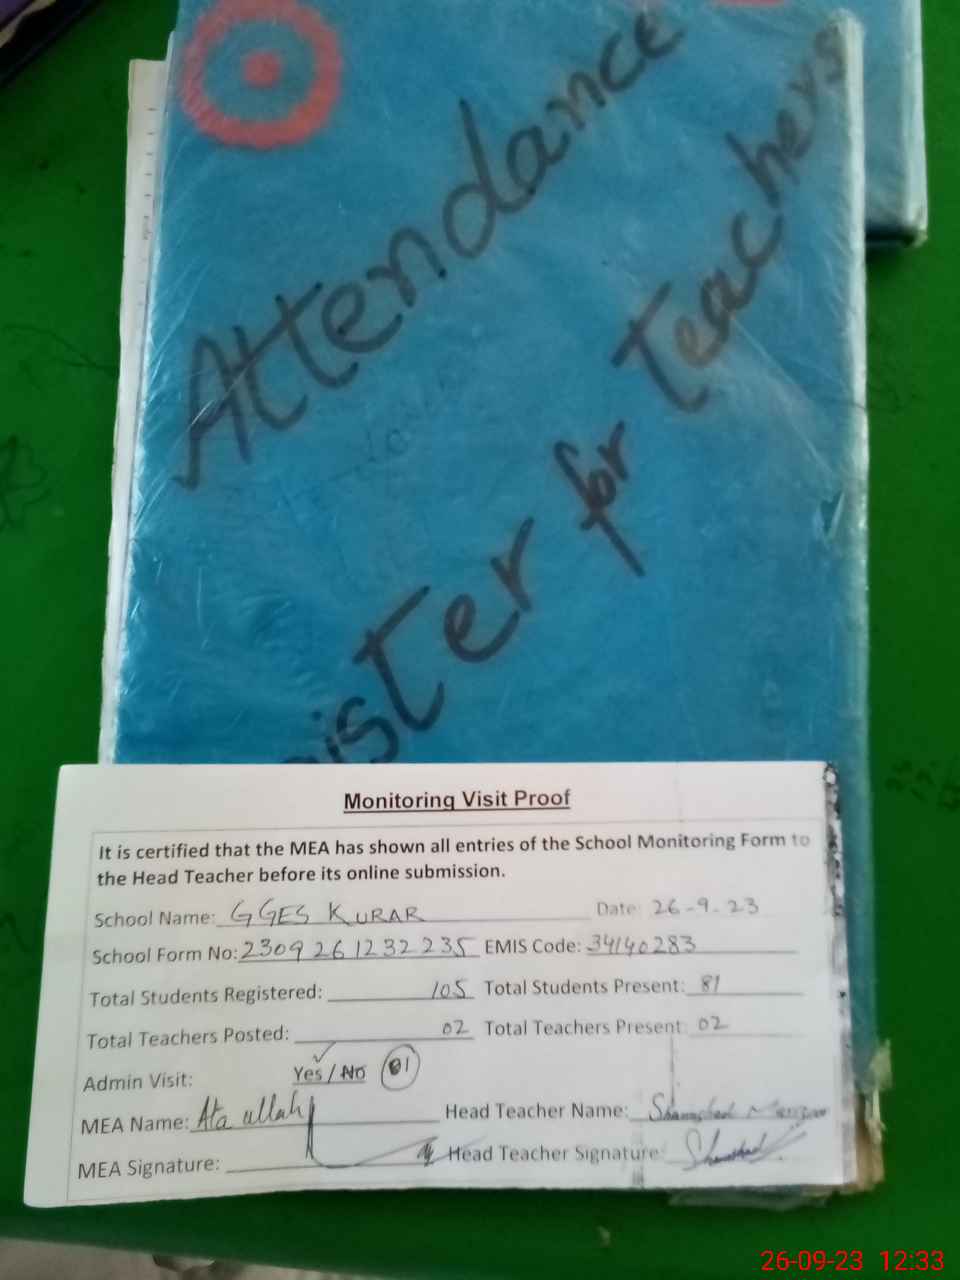 Attendance
ister for Teachers
Monitoring Visit Proof
It is certified that the MEA has shown all entries of the School Monitoring Form to
the Head Teacher before its online submission.
School Name: GGES KURAR Date: 26-9-23
School Form No: 2309261232235 EMIS Code: 34140283
Total Students Registered: 105 Total Students Present: 81
Total Teachers Posted: 02 Total Teachers Present: 02
Admin Visit: Yes / No 01
MEA Name: Ata ullah Head Teacher Name: Shamshad
MEA Signature: Head Teacher Signature: Shamshad
26-09-23 12:33